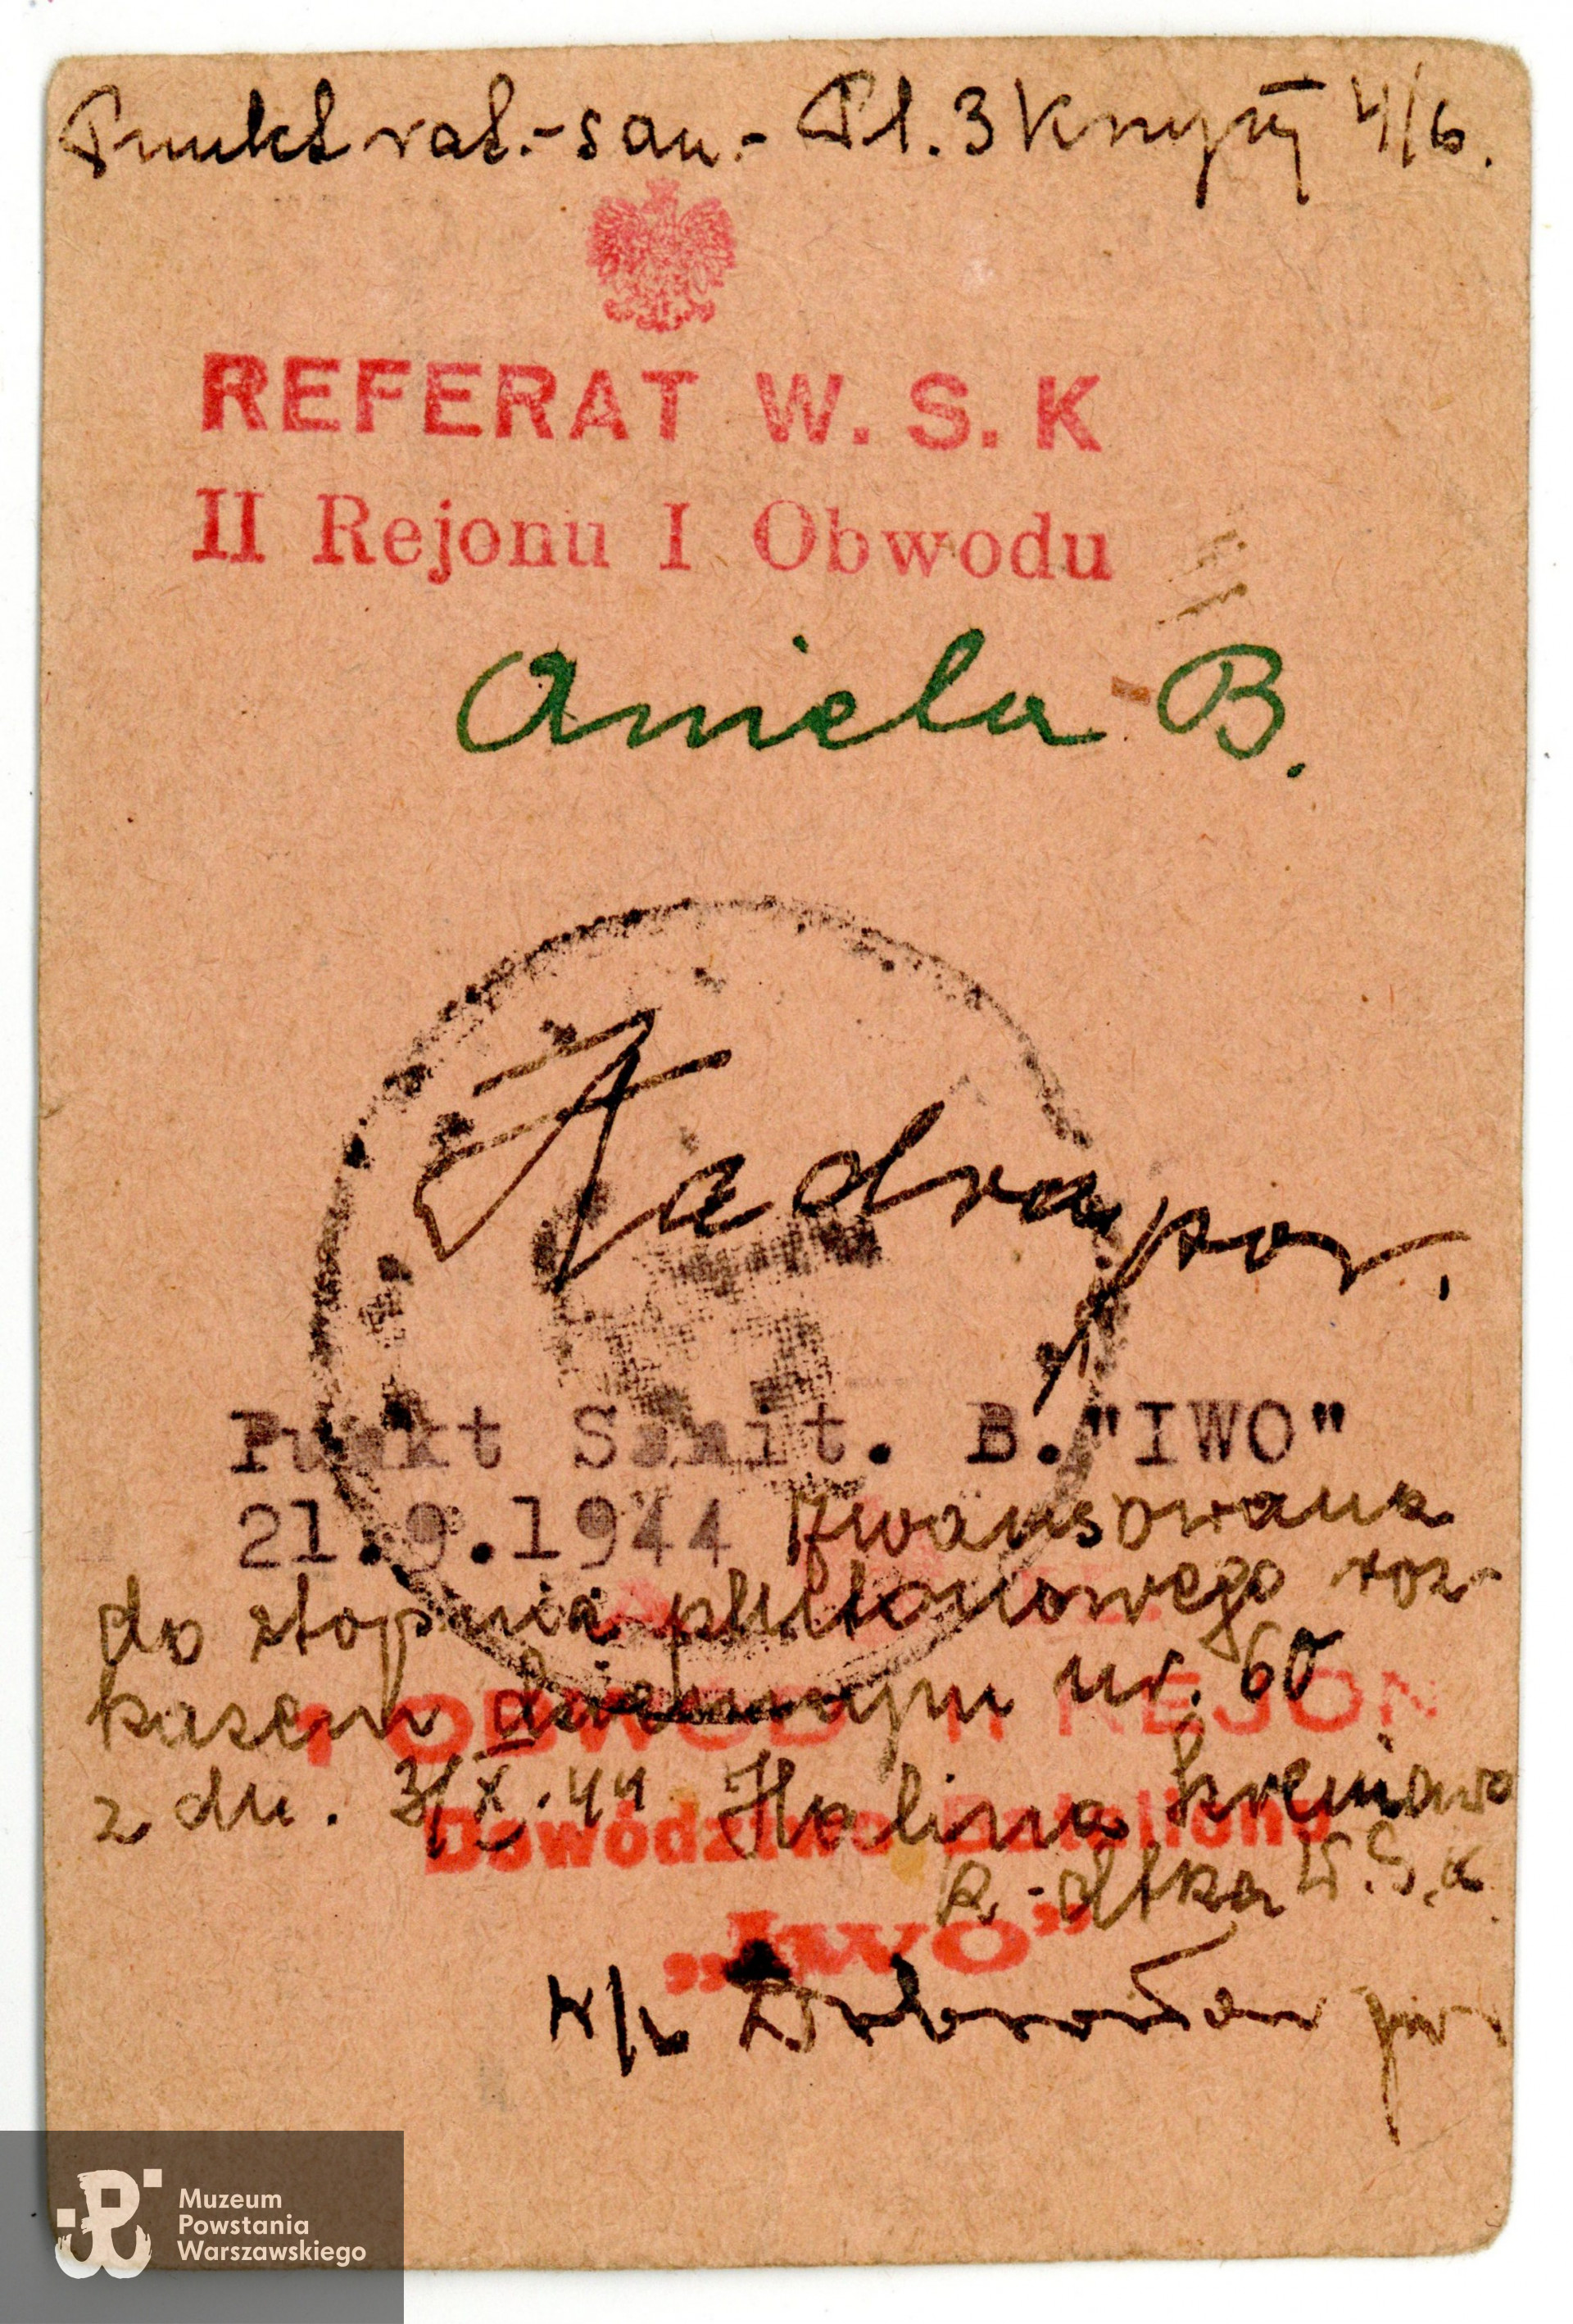 Punkt rat.-san.- Pl. 3 Krzyży 4/6.
REFERAT W. S. K
II Rejonu I Obwodu
Aniela B.
por.
Punkt Sanit. B."IWO"
21.9.1944 Awansowana
do stopnia plutonowego roz-
kazem dziennym nr. 60
I OBWÓD II REJON
z dn. 3/X.44 Halina Krzeniawa
Dowództwo Bataljonu
K-dtka W.S.K.
„IWO”
Muzeum
Powstania
Warszawskiego